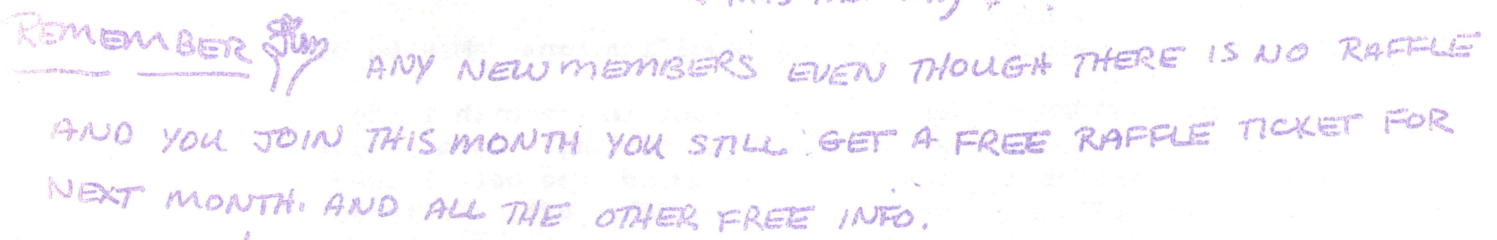 REMEMBER ANY NEW MEMBERS EVEN THOUGH THERE IS NO RAFFLE
AND YOU JOIN THIS MONTH YOU STILL GET A FREE RAFFLE TICKET FOR
NEXT MONTH. AND ALL THE OTHER FREE INFO.